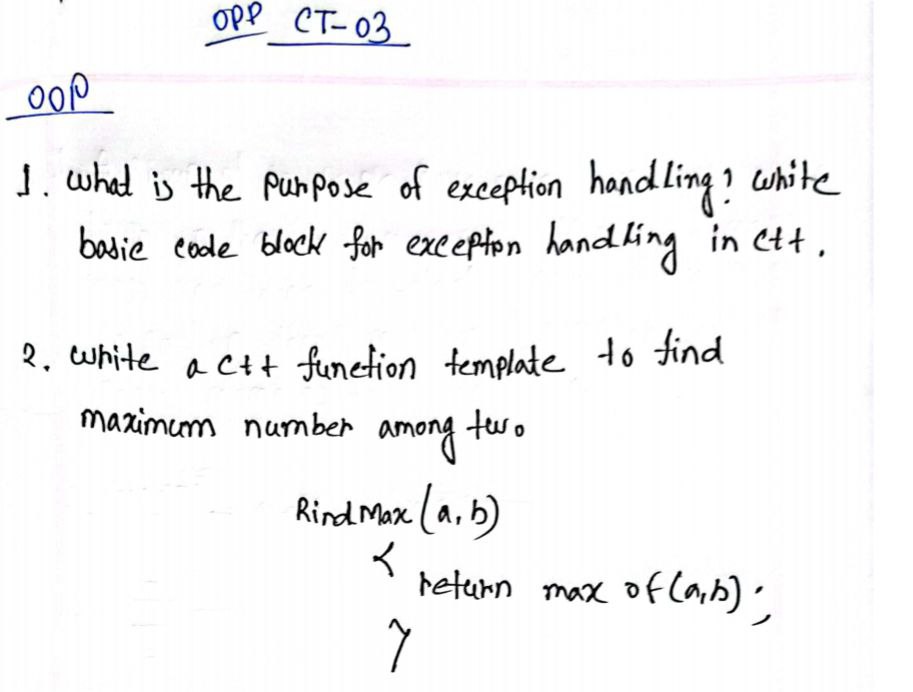 OPP CT-03
OOP
1. what is the purpose of exception handling? write
basic code block for exception handling in C++.
2. write a C++ function template to find
maximum number among two
FindMax (a, b)
{
return max of (a,b);
}